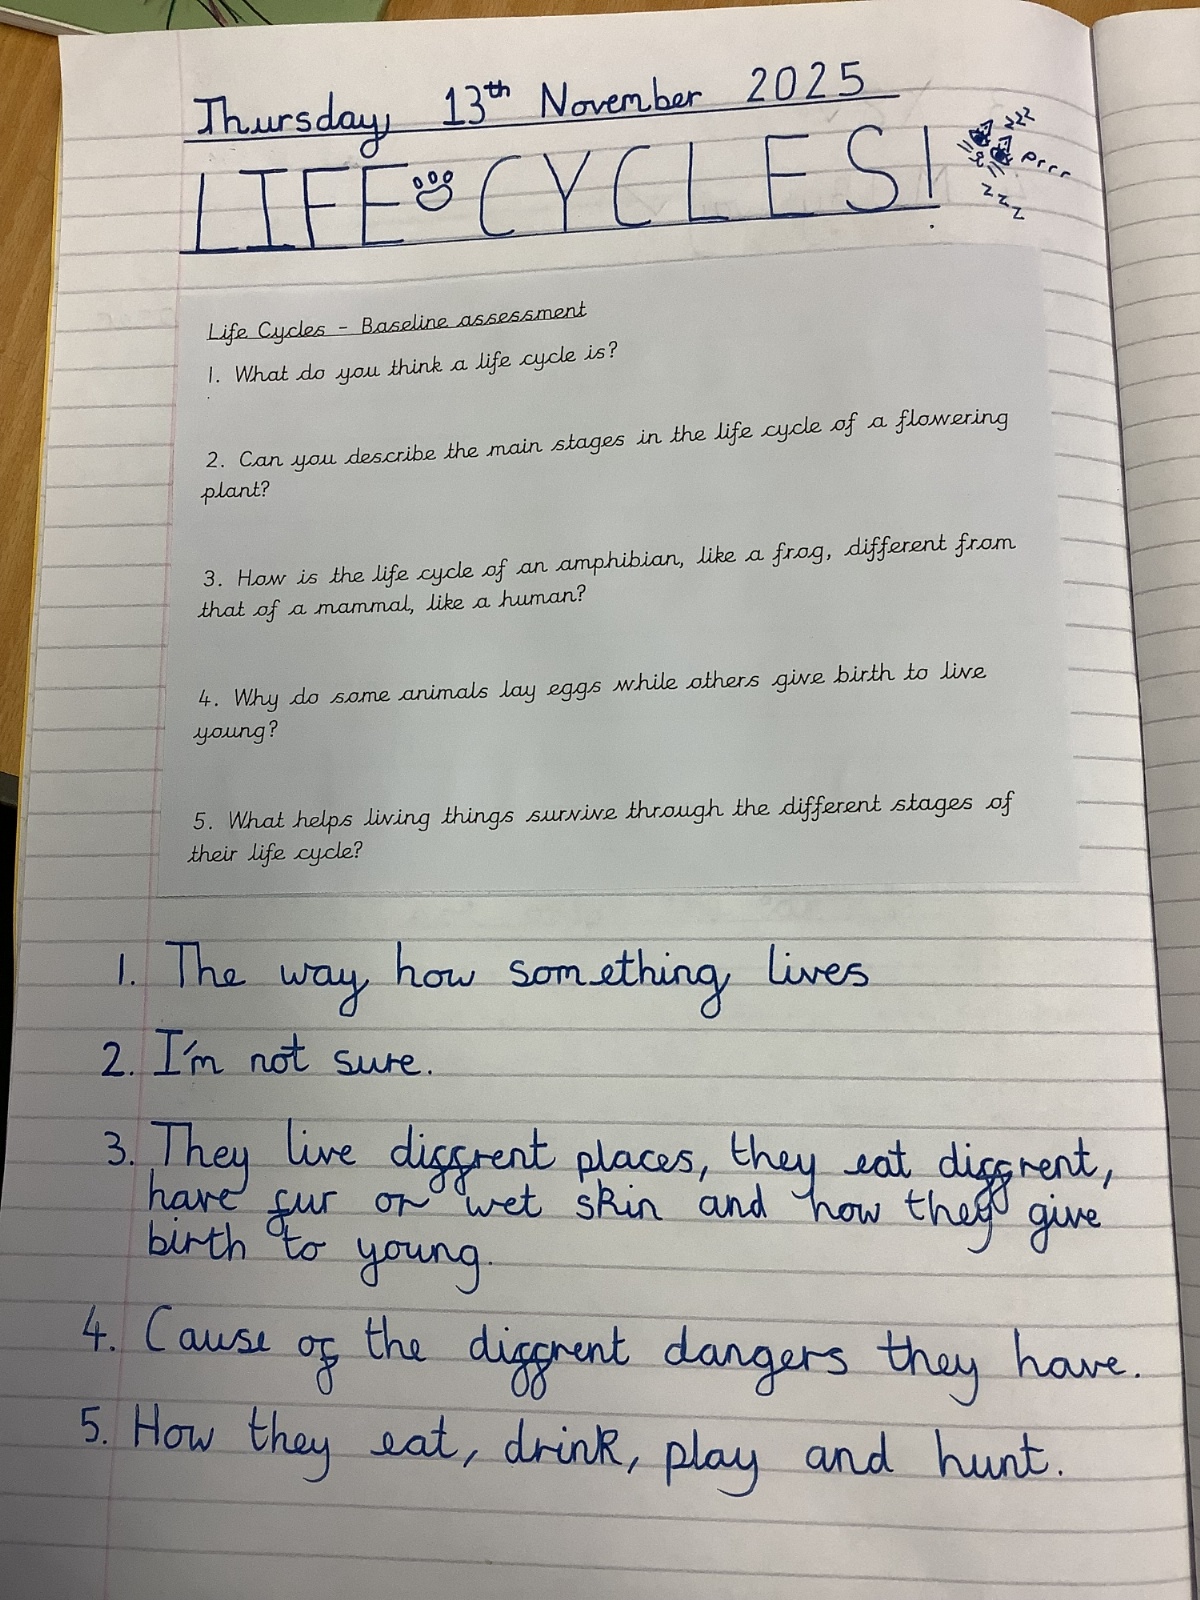 Thursday 13th November 2025
LIFE CYCLES!
zzz
prrr
zzz
Life Cycles - Baseline assessment
1. What do you think a life cycle is?
2. Can you describe the main stages in the life cycle of a flowering
plant?
3. How is the life cycle of an amphibian, like a frog, different from
that of a mammal, like a human?
4. Why do some animals lay eggs while others give birth to live
young?
5. What helps living things survive through the different stages of
their life cycle?
1. The way how something lives
2. I'm not sure.
3. They live diffrent places, they eat diffrent,
have fur or wet skin and how they give
birth to young.
4. Cause of the diffrent dangers they have.
5. How they eat, drink, play and hunt.